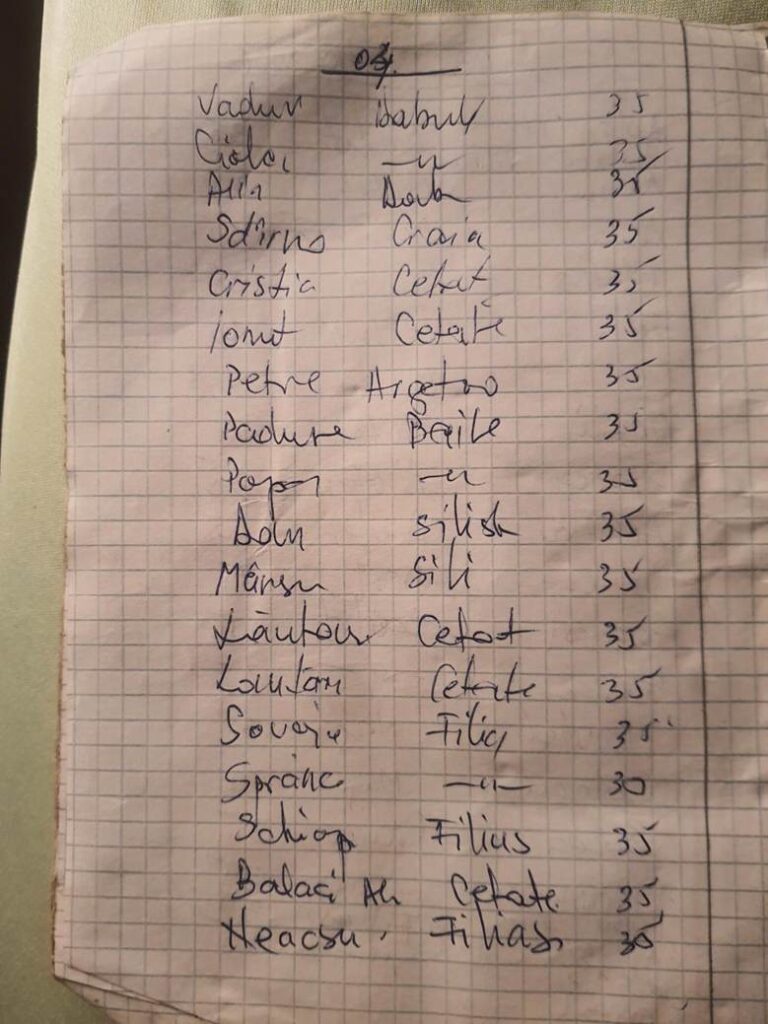 04.
Vaduv Dabul 35
Ciolac —u— 35
Alin Dab 35
Sdîrno Craia 35
Cristia Cetat 35
ionut Cetate 35
Petre Argetoa 35
Padure Baile 35
Popa —u— 35
Dan Silisk 35
Mârsu Sili 35
Lăutaru Cetat 35
Lautaru Cetate 35
Filia 35
Sprânc —u— 30
Schiop Filius 35
Balaci Al Cetate 35
Neacsu Filias 35